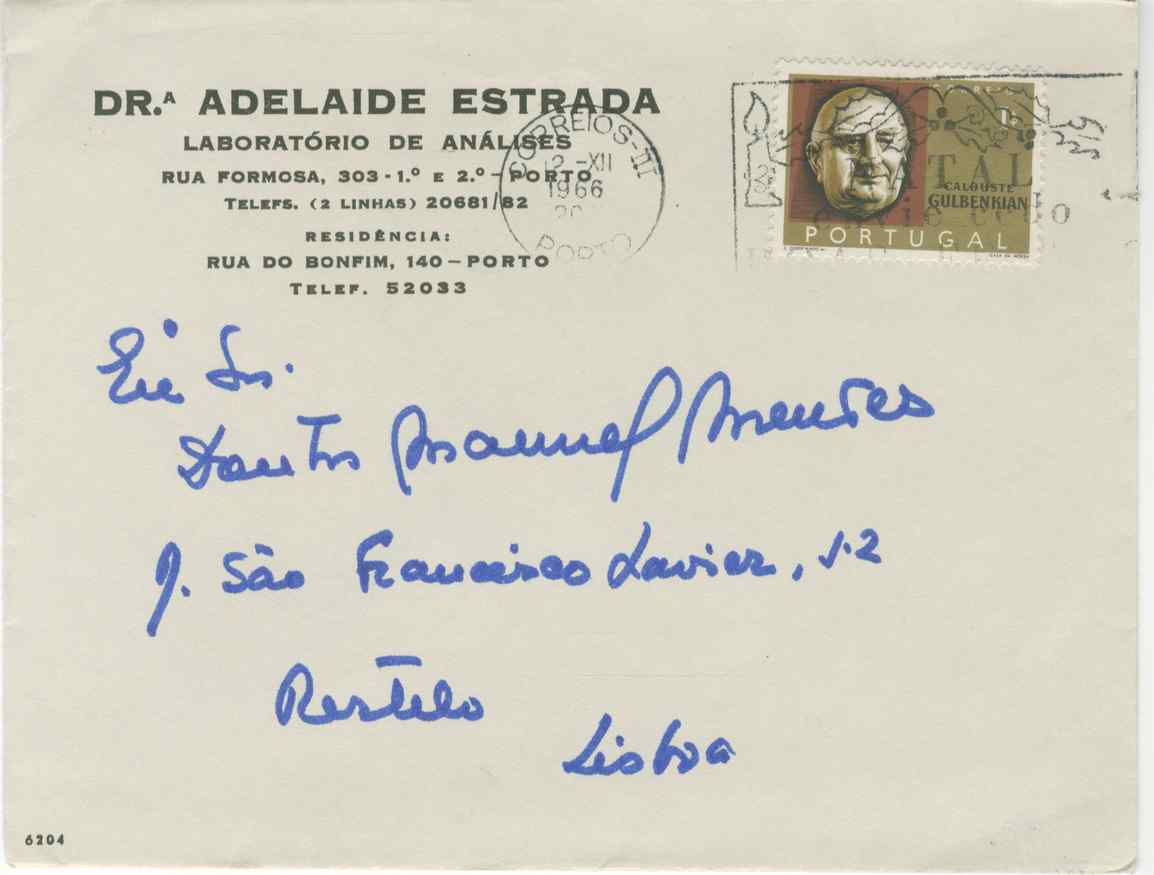 DR.ª ADELAIDE ESTRADA
LABORATÓRIO DE ANÁLISES
RUA FORMOSA, 303 - 1.º E 2.º - PORTO
TELEFS. (2 LINHAS) 20681/82
RESIDÊNCIA:
RUA DO BONFIM, 140 - PORTO
TELEF. 52033
CORREIOS-III
12.-XII
1966
20
PORTO
NATAL
envie cedo
CORREIOS
CALOUSTE
GULBENKIAN
PORTUGAL
Sr.
Doutor Manuel Mendes
São Francisco Xavier, 52
Restelo
Lisboa
6204